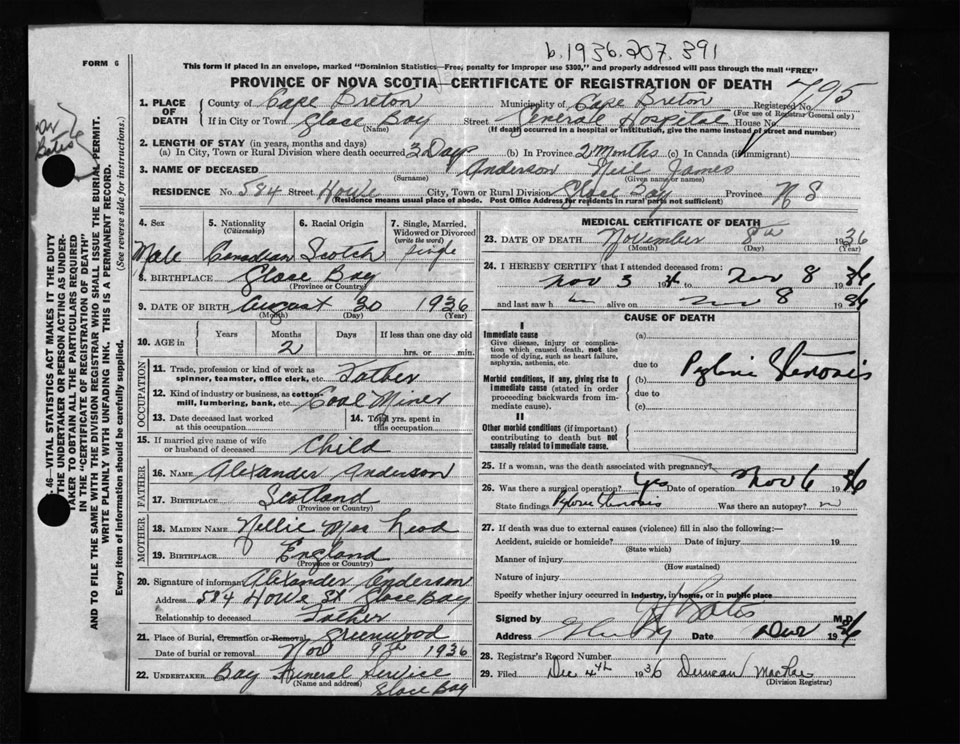 b.1936.207.391
FORM 6
This form if placed in an envelope, marked "Dominion Statistics—Free, penalty for improper use $300," and properly addressed will pass through the mail "FREE"
PROVINCE OF NOVA SCOTIA—CERTIFICATE OF REGISTRATION OF DEATH
1. PLACE OF DEATH County of Cape Breton Municipality of Cape Breton Registered No. 795
(For use of Registrar General only)
If in City or Town Glace Bay Street General Hospital House No.
(Name) (If death occurred in a hospital or institution, give the name instead of street and number)
2. LENGTH OF STAY (in years, months and days)
(a) In City, Town or Rural Division where death occurred 3 Days (b) In Province 2 Months (c) In Canada (if immigrant)
3. NAME OF DECEASED Anderson Neil James
(Surname) (Given name or names)
RESIDENCE No. 584 Street Howe City, Town or Rural Division Glace Bay Province N S
(Residence means usual place of abode. Post Office Address for residents in rural parts not sufficient)
4. Sex 5. Nationality (Citizenship) 6. Racial Origin 7. Single, Married, Widowed or Divorced (write the word)
Male Canadian Scotch Single
8. BIRTHPLACE Glace Bay
(Province or Country)
9. DATE OF BIRTH August 30 1936
(Month) (Day) (Year)
10. AGE in Years Months Days If less than one day old
2 hrs. or min.
OCCUPATION
11. Trade, profession or kind of work as spinner, teamster, office clerk, etc. Father
12. Kind of industry or business, as cotton-mill, lumbering, bank, etc. Coal Miner
13. Date deceased last worked at this occupation 14. Total yrs. spent in this occupation
15. If married give name of wife or husband of deceased Child
FATHER
16. NAME Alexander Anderson
17. BIRTHPLACE Scotland
(Province or Country)
MOTHER
18. MAIDEN NAME Nellie Mac Leod
19. BIRTHPLACE England
(Province or Country)
20. Signature of informant Alexander Anderson
Address 584 Howe St Glace Bay
Relationship to deceased Father
21. Place of Burial, Cremation or Removal Greenwood
Date of burial or removal Nov 9th 1936
22. UNDERTAKER Bay Funeral Service
(Name and address) Glace Bay
MEDICAL CERTIFICATE OF DEATH
23. DATE OF DEATH November 8th 1936
(Month) (Day) (Year)
24. I HEREBY CERTIFY that I attended deceased from:
Nov 3 1936 to Nov 8 1936
and last saw h im alive on Nov 8 1936
CAUSE OF DEATH
I
Immediate cause
Give disease, injury or complication which caused death, not the mode of dying, such as heart failure, asphyxia, asthenia, etc.
(a)
due to Pyloric Stenosis
Morbid conditions, if any, giving rise to immediate cause (stated in order proceeding backwards from immediate cause).
(b)
due to
(c)
II
Other morbid conditions (if important) contributing to death but not causally related to immediate cause.
25. If a woman, was the death associated with pregnancy?
26. Was there a surgical operation? Yes Date of operation Nov 6 1936
State findings Pyloric Stenosis Was there an autopsy? no
27. If death was due to external causes (violence) fill in also the following:—
Accident, suicide or homicide? Date of injury 19
(State which)
Manner of injury
(How sustained)
Nature of injury
Specify whether injury occurred in industry, in home, or in public place
Signed by Bates M.D.
Address Date 1936
28. Registrar's Record Number
29. Filed Dec 4th 1936 Duncan MacRae
(Division Registrar)
46—VITAL STATISTICS ACT MAKES IT THE DUTY
THE UNDERTAKER OR PERSON ACTING AS UNDER-
TAKER TO OBTAIN ALL THE PARTICULARS REQUIRED
IN THE "CERTIFICATE OF REGISTRATION OF DEATH"
AND TO FILE THE SAME WITH THE DIVISION REGISTRAR WHO SHALL ISSUE THE BURIAL PERMIT.
WRITE PLAINLY WITH UNFADING INK. THIS IS A PERMANENT RECORD.
Every item of information should be carefully supplied. (See reverse side for instructions.)
Bates